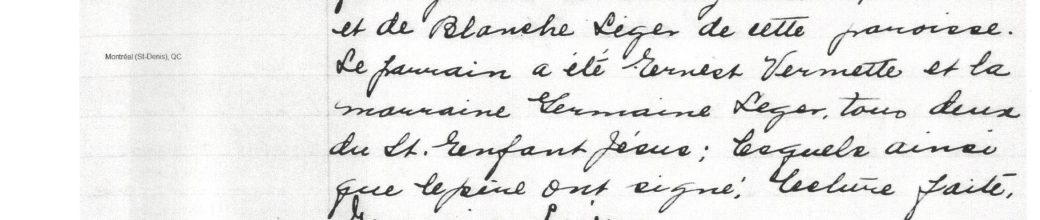 et de Blanche Léger de cette paroisse.
Montréal (St-Denis), QC
Le parrain a été Ernest Vermette et la
marraine Germaine Leger, tous deux
du St. Enfant Jésus; lesquels ainsi
que le père ont signé. Lecture faite.